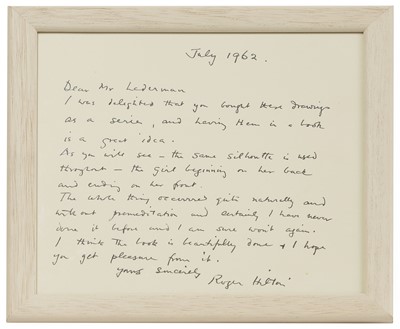 July 1962.
Dear Mr Laderman
I was delighted that you bought these drawings
as a series, and having them in a book
is a great idea.
As you will see – the same silhoutte is used
throughout – the girl beginning on her back
and ending on her front.
The whole thing occurred quite naturally and
without premeditation and certainly I have never
done it before and I am sure won't again.
I think the book is beautifully done & I hope
you get pleasure from it.
Yours sincerely
Roger Hilton